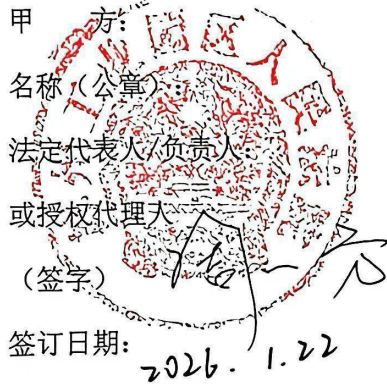 甲 方:
名称(公章):
法定代表人/负责人:
或授权代理人
(签字)
签订日期:2026.1.22